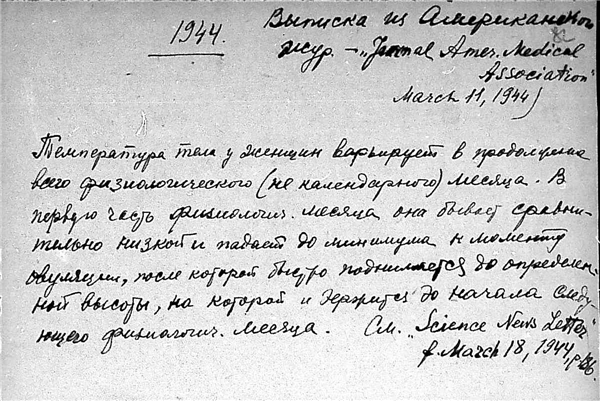 1944.
Выписка из Американской
жур. — „Jornal Amer. Medical
Association"
March 11, 1944)
Температура тела у женщин варьирует в продолжении
всего физиологического (не календарного) месяца. В
первую часть физиологич. месяца она бывает сравни-
тельно низкой и падает до минимума к моменту
овуляции, после которой быстро поднимается до определен-
ной высоты, на которой и держится до начала следу-
ющего физиологич. месяца. См. „Science News Letter"
f. March 18, 1944,